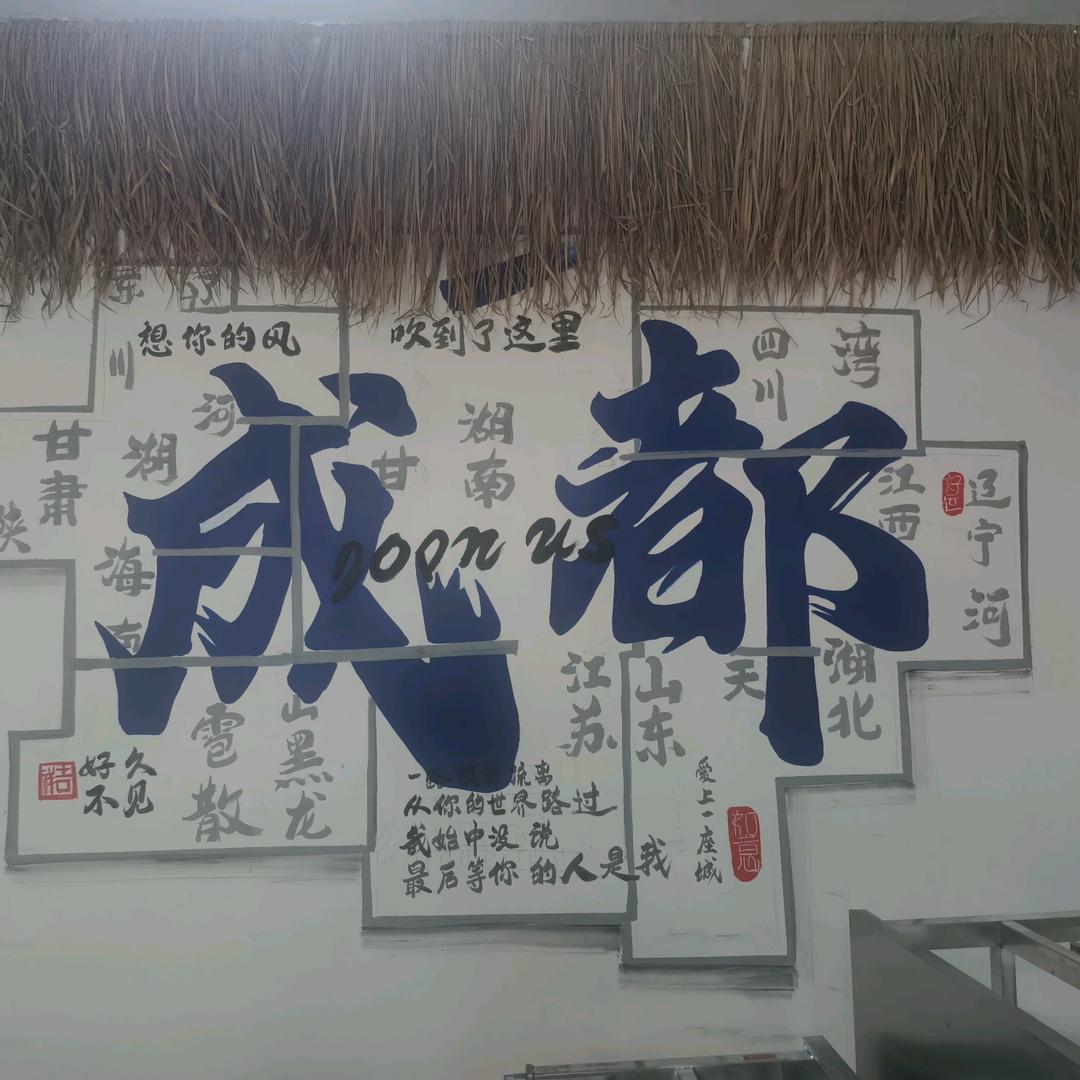 想你的风
吹到了这里
川
河
湖
甘肃
陕
海南
成都
甘
湖南
四川
湾
江西
好运
辽宁
河
江苏
山东
天
湖北
雹
散
山
黑龙
好久
不见
流离
从你的世界路过
我始中没说
最后等你的人是我
爱上一座城
如意